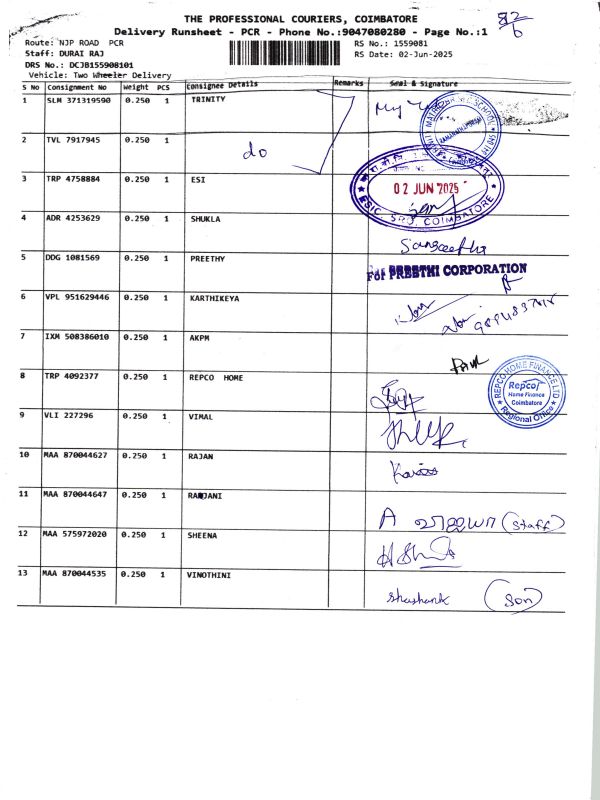 THE PROFESSIONAL COURIERS, COIMBATORE
Delivery Runsheet - PCR - Phone No.:9047080280 - Page No.:1
Route: NJP ROAD PCR
RS No.: 1559081
Staff: DURAI RAJ
RS Date: 02-Jun-2025
DRS No.: DCJB155908101
Vehicle: Two Wheeler Delivery
S No Consignment No Weight PCS Consignee Details Remarks Seal & Signature
1 SLM 371319590 0.250 1 TRINITY
2 TVL 7917945 0.250 1 do
3 TRP 4758884 0.250 1 ESI
02 JUN 2025
ESIC, SRO, COIMBATORE
4 ADR 4253629 0.250 1 SHUKLA
Sangeetha
5 DDG 1081569 0.250 1 PREETHY
For PREETHI CORPORATION
6 VPL 951629446 0.250 1 KARTHIKEYA
7 IXM 508386010 0.250 1 AKPM
8 TRP 4092377 0.250 1 REPCO HOME
REPCO HOME FINANCE LTD
Repco
Home Finance
Coimbatore
Regional Office
9 VLI 227296 0.250 1 VIMAL
10 MAA 870044627 0.250 1 RAJAN
11 MAA 870044647 0.250 1 RANJANI
A (Staff)
12 MAA 575972020 0.250 1 SHEENA
13 MAA 870044535 0.250 1 VINOTHINI
Shashank (Son)